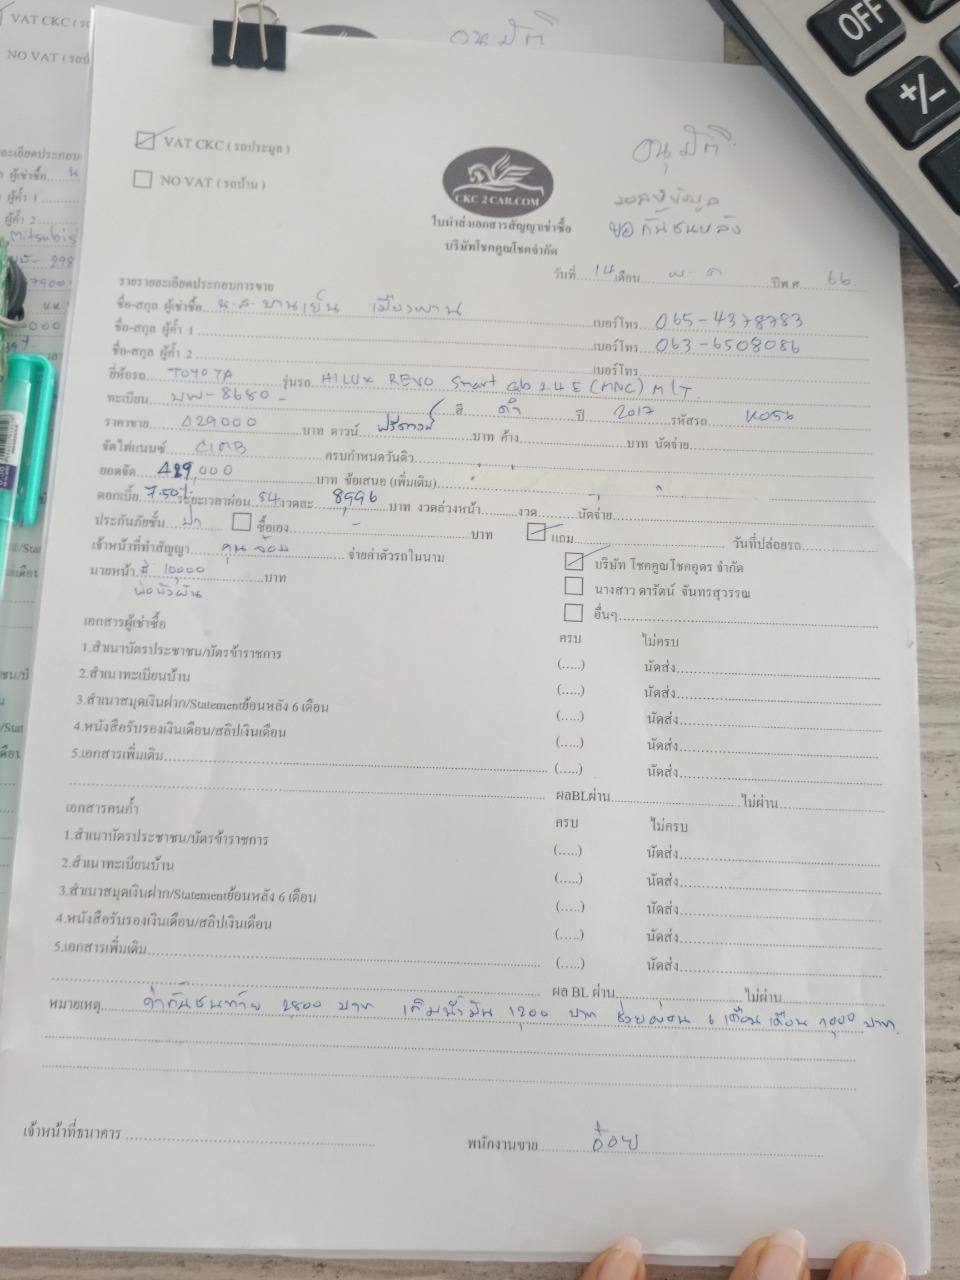 VAT CKC ( รถ
NO VAT ( รถบ้
อนุมัติ
OFF
+/-
VAT CKC ( รถประมูล )
NO VAT ( รถบ้าน )
อนุมัติ
CKC 2 CAR.COM
ขอกันชนหลัง
ใบนำส่งเอกสารสัญญาเช่าซื้อ
บริษัทโชคคูณโชคจำกัด
วันที่ 14 เดือน พ.ค ปีพ.ศ 66
รายรายละเอียดประกอบการขาย
ชื่อ-สกุล ผู้เช่าซื้อ น.ส. บานเย็น เมืองพาน เบอร์โทร 065-4378783
ชื่อ-สกุล ผู้ค้ำ 1 เบอร์โทร 063-6508086
ชื่อ-สกุล ผู้ค้ำ 2 เบอร์โทร
ยี่ห้อรถ TOYOTA รุ่นรถ HILUX REVO Smart Cab 2.4 E (MNC) M/T
ทะเบียน 8680 สี ดำ ปี 2017 รหัสรถ
ราคาขาย 429000 บาท ดาวน์ ฟรีดาวน์ บาท ค้าง บาท นัดจ่าย
จัดไฟแนนซ์ CIMB ครบกำหนดวันดิว
ยอดจัด 429,000 บาท ข้อเสนอ (เพิ่มเติม)
ดอกเบี้ย 7.50% ระยะเวลาผ่อน 84 งวดละ 8,996 บาท งวดล่วงหน้า งวด นัดจ่าย
ประกันภัยชั้น ซื้อเอง - บาท แถม วันที่ปล่อยรถ
เจ้าหน้าที่ทำสัญญา คุณ จ่ายค่าตัวรถในนาม บริษัท โชคคูณโชคอุดร จำกัด
นายหน้า # 10,000 บาท นางสาว ดารัตน์ จันทรสุวรรณ
อื่นๆ
เอกสารผู้เช่าซื้อ ครบ ไม่ครบ
1.สำเนาบัตรประชาชน/บัตรข้าราชการ (.....) นัดส่ง
2.สำเนาทะเบียนบ้าน (.....) นัดส่ง
3.สำเนาสมุดเงินฝาก/Statementย้อนหลัง 6 เดือน (.....) นัดส่ง
4.หนังสือรับรองเงินเดือน/สลิปเงินเดือน (.....) นัดส่ง
5.เอกสารเพิ่มเติม (.....) นัดส่ง
ผลBLผ่าน ไม่ผ่าน
เอกสารคนค้ำ ครบ ไม่ครบ
1.สำเนาบัตรประชาชน/บัตรข้าราชการ (.....) นัดส่ง
2.สำเนาทะเบียนบ้าน (.....) นัดส่ง
3.สำเนาสมุดเงินฝาก/Statementย้อนหลัง 6 เดือน (.....) นัดส่ง
4.หนังสือรับรองเงินเดือน/สลิปเงินเดือน (.....) นัดส่ง
5.เอกสารเพิ่มเติม (.....) นัดส่ง
ผล BL ผ่าน ไม่ผ่าน
หมายเหตุ ค่ากันชนท้าย 2800 บาท เติมน้ำมัน 1,200 บาท ช่วยผ่อน 6 เดือน เดือน 1000 บาท.
เจ้าหน้าที่ธนาคาร พนักงานขาย อ้อย